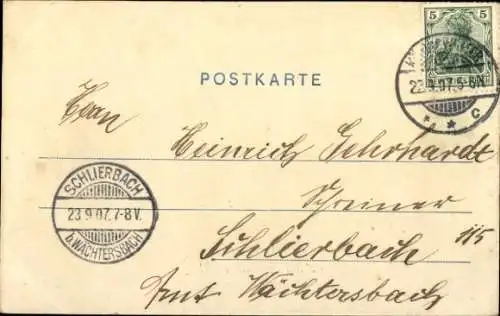 5 5
23.9.07.5-6N
* * C
POSTKARTE
Herrn
Heinrich Gehrhardt
Schreiner
SCHLIERBACH
23.9.07.7-8V.
b. WÄCHTERSBACH
Schlierbach 115
Amt Wächtersbach